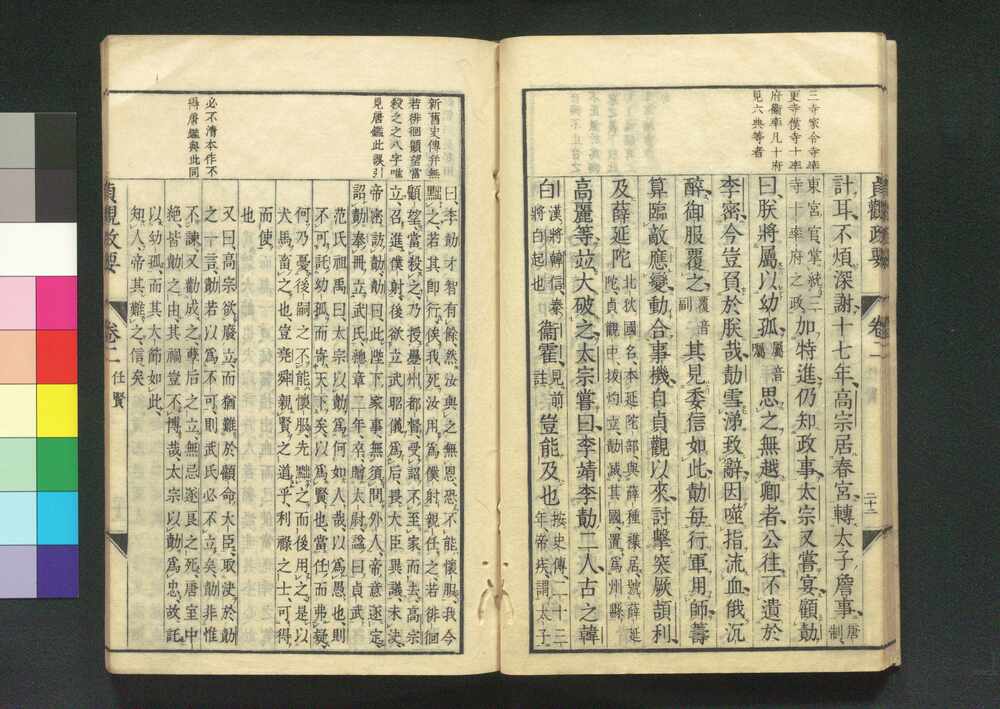 三寺家令寺率
更寺僕寺十率
府衞率凡十府
見六典等者
貞觀政要
卷二
二十二
計耳不煩深謝十七年高宗居春宮轉太子詹事唐制
東宮官掌統三寺十率府之政加特進仍知政事太宗又嘗宴顧勣
曰朕將屬以幼孤屬音屬思之無越卿者公往不遺於
李密今豈負於朕哉勣雪涕致辭因噬指流血俄沉
醉御服覆之覆音其見委信如此勣每行軍用師籌
算臨敵應變動合事機自貞觀以來討擊突厥頡利
及薛延陀
高麗等並大破之太宗嘗曰李靖李勣二人古之韓
白漢將韓信秦將白起也衞霍見前註豈能及也按史傳二十三年帝疾謂太子
新舊史傳幷無
若徘徊顧望當
殺之之八字唯
見唐鑑此誤引
必不淸本作不
得唐鑑與此同
曰李勣才智有餘然汝與之無恩恐不能懷服我今
黜之若其卽行俟我死汝用爲僕射親任之若徘徊
顧望當殺也乃授疊州都督受詔不至家而去高宗
立召進僕射後欲立武昭儀爲后畏大臣異議未決
帝密訪勣勣曰此陛下家事無須問外人帝意遂定
詔勣奉冊立武氏總章二年卒贈太尉諡曰貞武
范氏祖禹曰太宗以勣爲何如人哉以爲愚也則
不可託幼孤而寄天下矣以爲賢也當任而弗疑
何乃憂後嗣之不能懷服先黜之而後用之是以
犬馬畜之也豈堯舜親賢之道乎利祿之士可得
而使
又曰高宗欲廢立而猶難於顧命大臣取決於勣
之一言勣若以爲不可則武氏必不立矣勣非惟
不諫又勸成之孽后之立無忌遂良之死唐室中
絕皆勣之由其禍豈不博哉太宗以勣爲忠故託
以幼孤而其大節如此
知人帝其難之信矣
貞觀政要
卷二
任賢